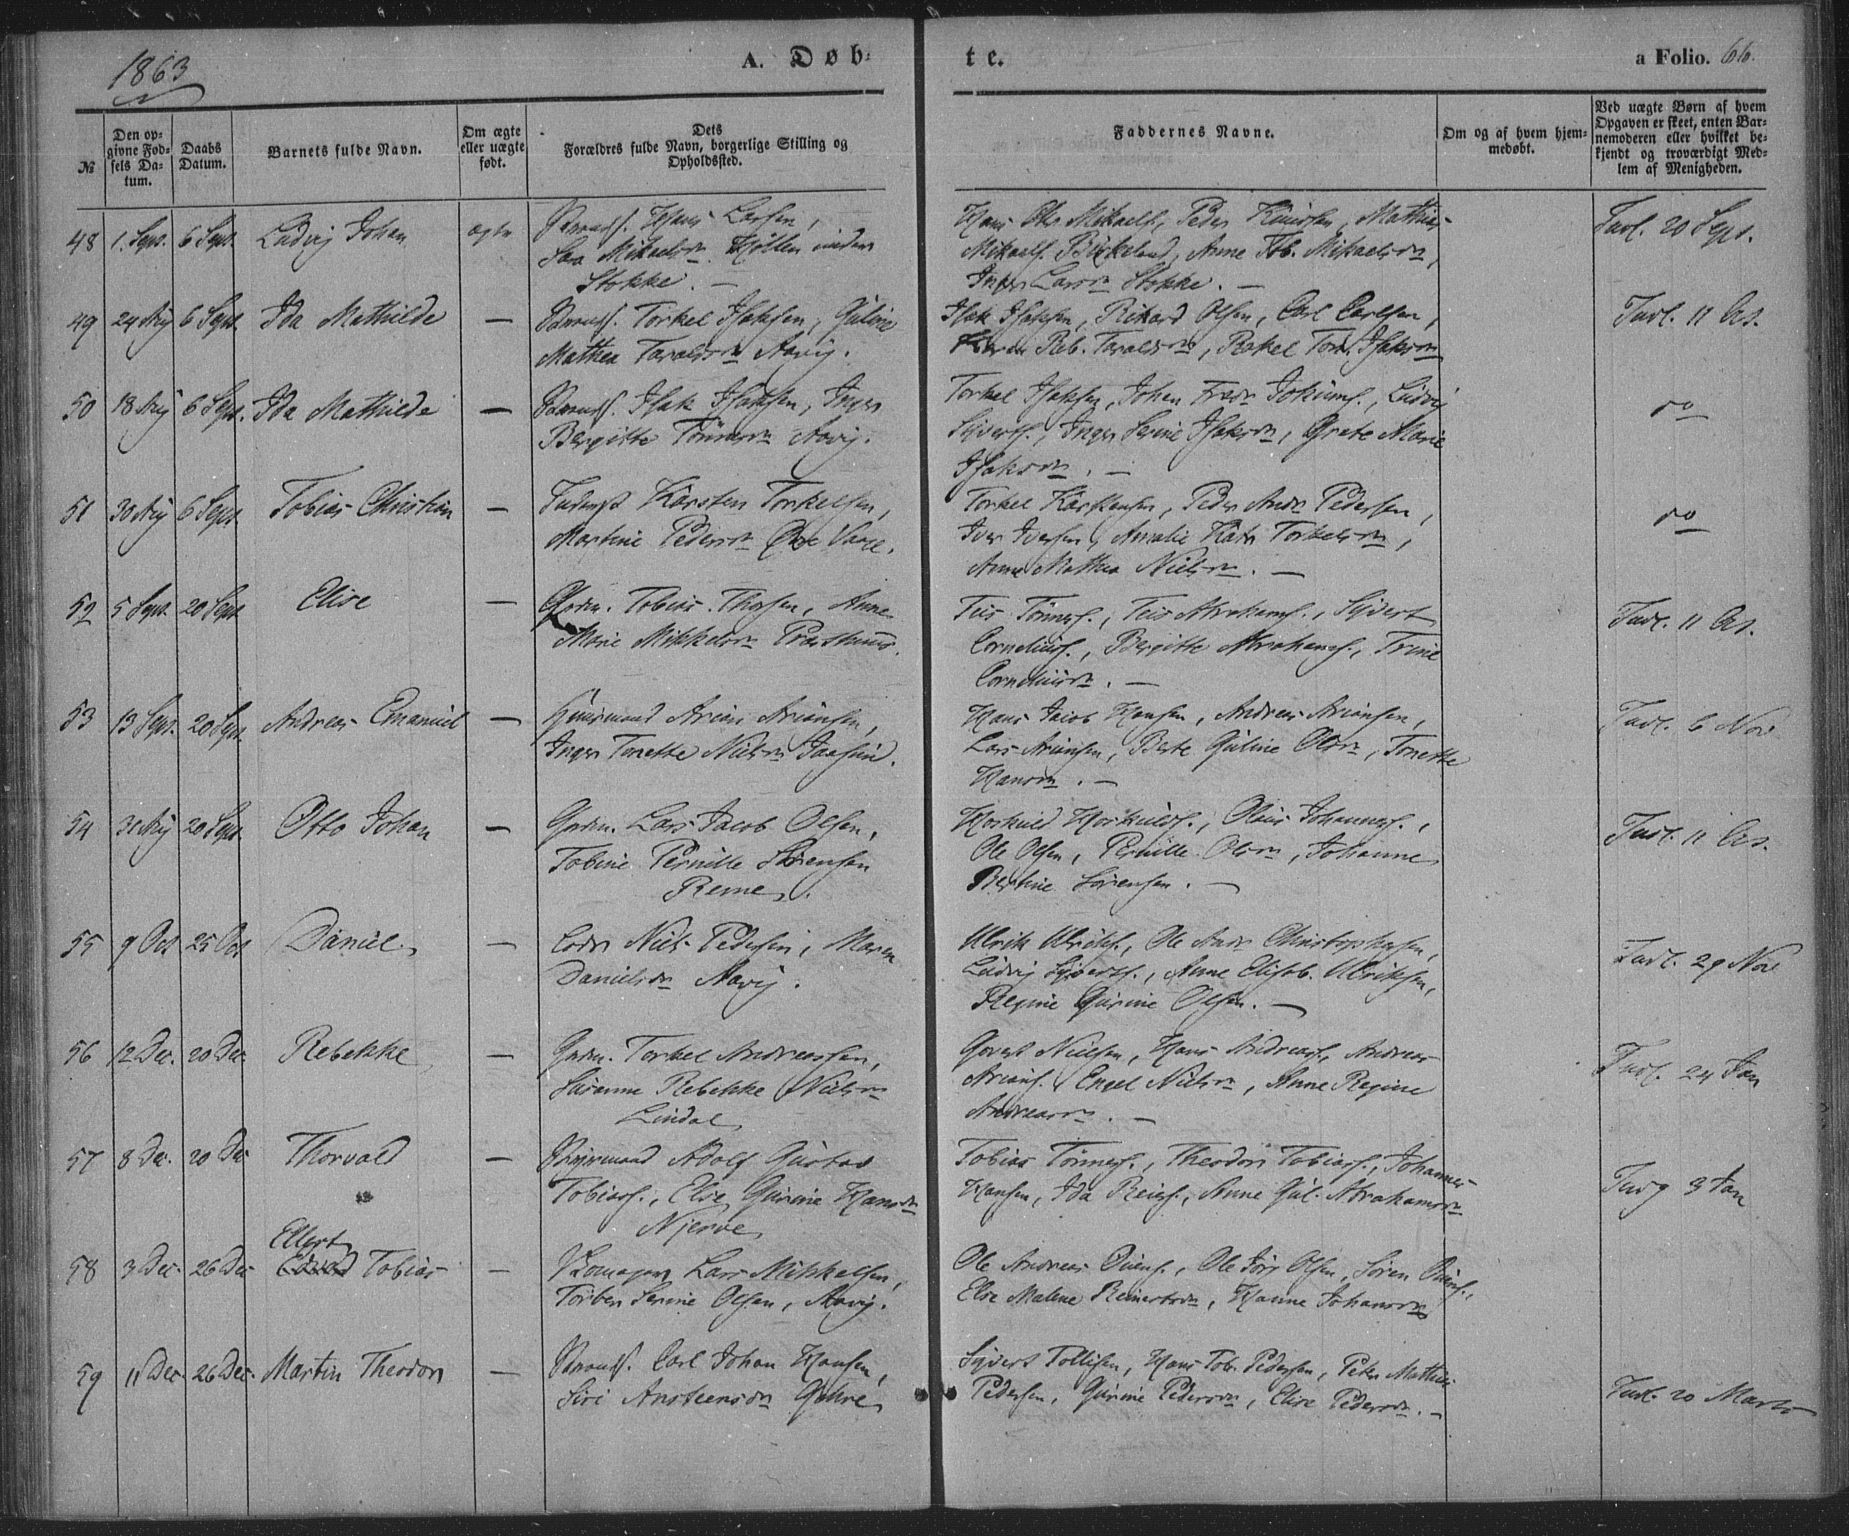 1863
A. Døb-
te.
a Folio. 66.
№
Den opgivne Fødsels Datum.
Daabs Datum.
Barnets fulde Navn.
Om ægte eller uægte født.
Dets
Forældres fulde Navn, borgerlige Stilling og Opholdssted.
Faddernes Navne.
Om og af hvem hjemmedøbt.
Ved uægte Børn af hvem Opgaven er skeet, enten Barnemoderen eller hvilket bekjendt og troværdigt Medlem af Menigheden.
48 1. Sept. 6 Sept. Ludvig Johan ægte Hans Larsen,
Mikaelsdn under
Stokke. —
Hans Mikaels., Peder Knudsen, Mathias
Mikaels. Birkeland, Anne Tob. Mikaelsdn,
Inger Larsdn Stokke. —
Indl. 20 Sept.
49 24 Aug 6 Sept Ida Mathilde — Torkel Isaksen, Guline
Mathea Taraldsdn Aavig.
Isak Isaksen, Rikard Olsen, Carl Carlsen,
Reb. Taraldsdn, Rakel Tom. Isaksdn
Indl. 11 Oct.
50 18 Aug 6 Sept. Ida Mathilde — Isak Isaksen, Inger
Bergitte Tønnesdn Aavig.
Torkel Isaksen, Johan Fredr Jokums., Ludvig
Syverts., Inger Serine Isaksdn, Grete Marie
Isaksdn. —
do
51 30 Aug 6 Sept Tobias Christian — Karsten Torkelsen,
Martine Pedersdn Vaage.
Torkel Karstensen, Peder Andr Pedersen,
Iver Iversen, Amalie Kathr Torkelsdn,
Anne Mathea Nielsdn. —
do
52 5 Sept. 20 Sept Elise — Gdm. Tobias Thorsen, Anne
Marie Mikkelsdn Prestlund.
Teis Tønnes., Teis Abrahams., Syvert
Cornelius., Bergitte Abrahams., Trine
Corneliusdn. —
Indl. 11 Oct.
53 13 Sept. 20 Sept. Andreas Emanuel — Huusmand Arian Ariansen,
Inger Tonette Nielsdn Jaasund.
Hans Jacob Hansen, Andreas Ariansen,
Lars Ariansen, Berte Guline Olsdn, Tonette
Hansdn. —
Indl. 6 Nov
54 31 Aug 20 Sept Otto Johan — Gdm. Lars Jacob Olsen,
Tobine Pernille Sørensen
Reme.
Horskuld Horskulds., Olaus Johannes.,
Ole Olsen, Pernille Olsdn, Johanne
Bertine Sørensen. —
Indl. 11 Oct.
55 9 Oct 25 Oct Daniel — Lods Niels Pedersen, Maren
Danielsdn Aavig.
Ulrik Ulriks., Ole Andr Christophersen,
Ludvig Syverts., Anne Elisab. Ulriksen,
Regine Gurine Olsen. —
Indl. 29 Nov
56 12 Dec. 20 Dec Rebekke — Gdm. Torkel Andreassen,
Susanne Rebekke Nielsdn
Lindal
Govert Nielsen, Hans Andreas., Andreas
Arians. Engel Nielsdn, Anne Regine
Andreasdn. —
Indl. 24 Jan
57 8 Dec. 20 Dec Thorvald — Adolf Gustav
Tobias., Else Gurine Hansdn
Njerve
Tobias Tønnes., Theodor Tobias., Johannes
Hansen, Ida Reies., Anne Gul. Abrahamsdn
Indg 3 Jan
58 3 Dec. 26 Dec Ellert Tobias — Lars Mikkelsen,
Torber Serine Olsen, Aavig.
Ole Andreas Ouens., Ole Jørg Olsen, Søren Ouens.,
Else Malene Reinertsdn, Hanne Johansdn
59 11 Dec. 26 Dec. Martin Theodor — Carl Johan Hansen,
Siri Ansteensdn
Syvert Tollisen, Hans Tob. Pedersen, Peter Mathias
Pedersen, Gurine Pedersdn, Elise Pedersdn. —
Indl. 20 Marts